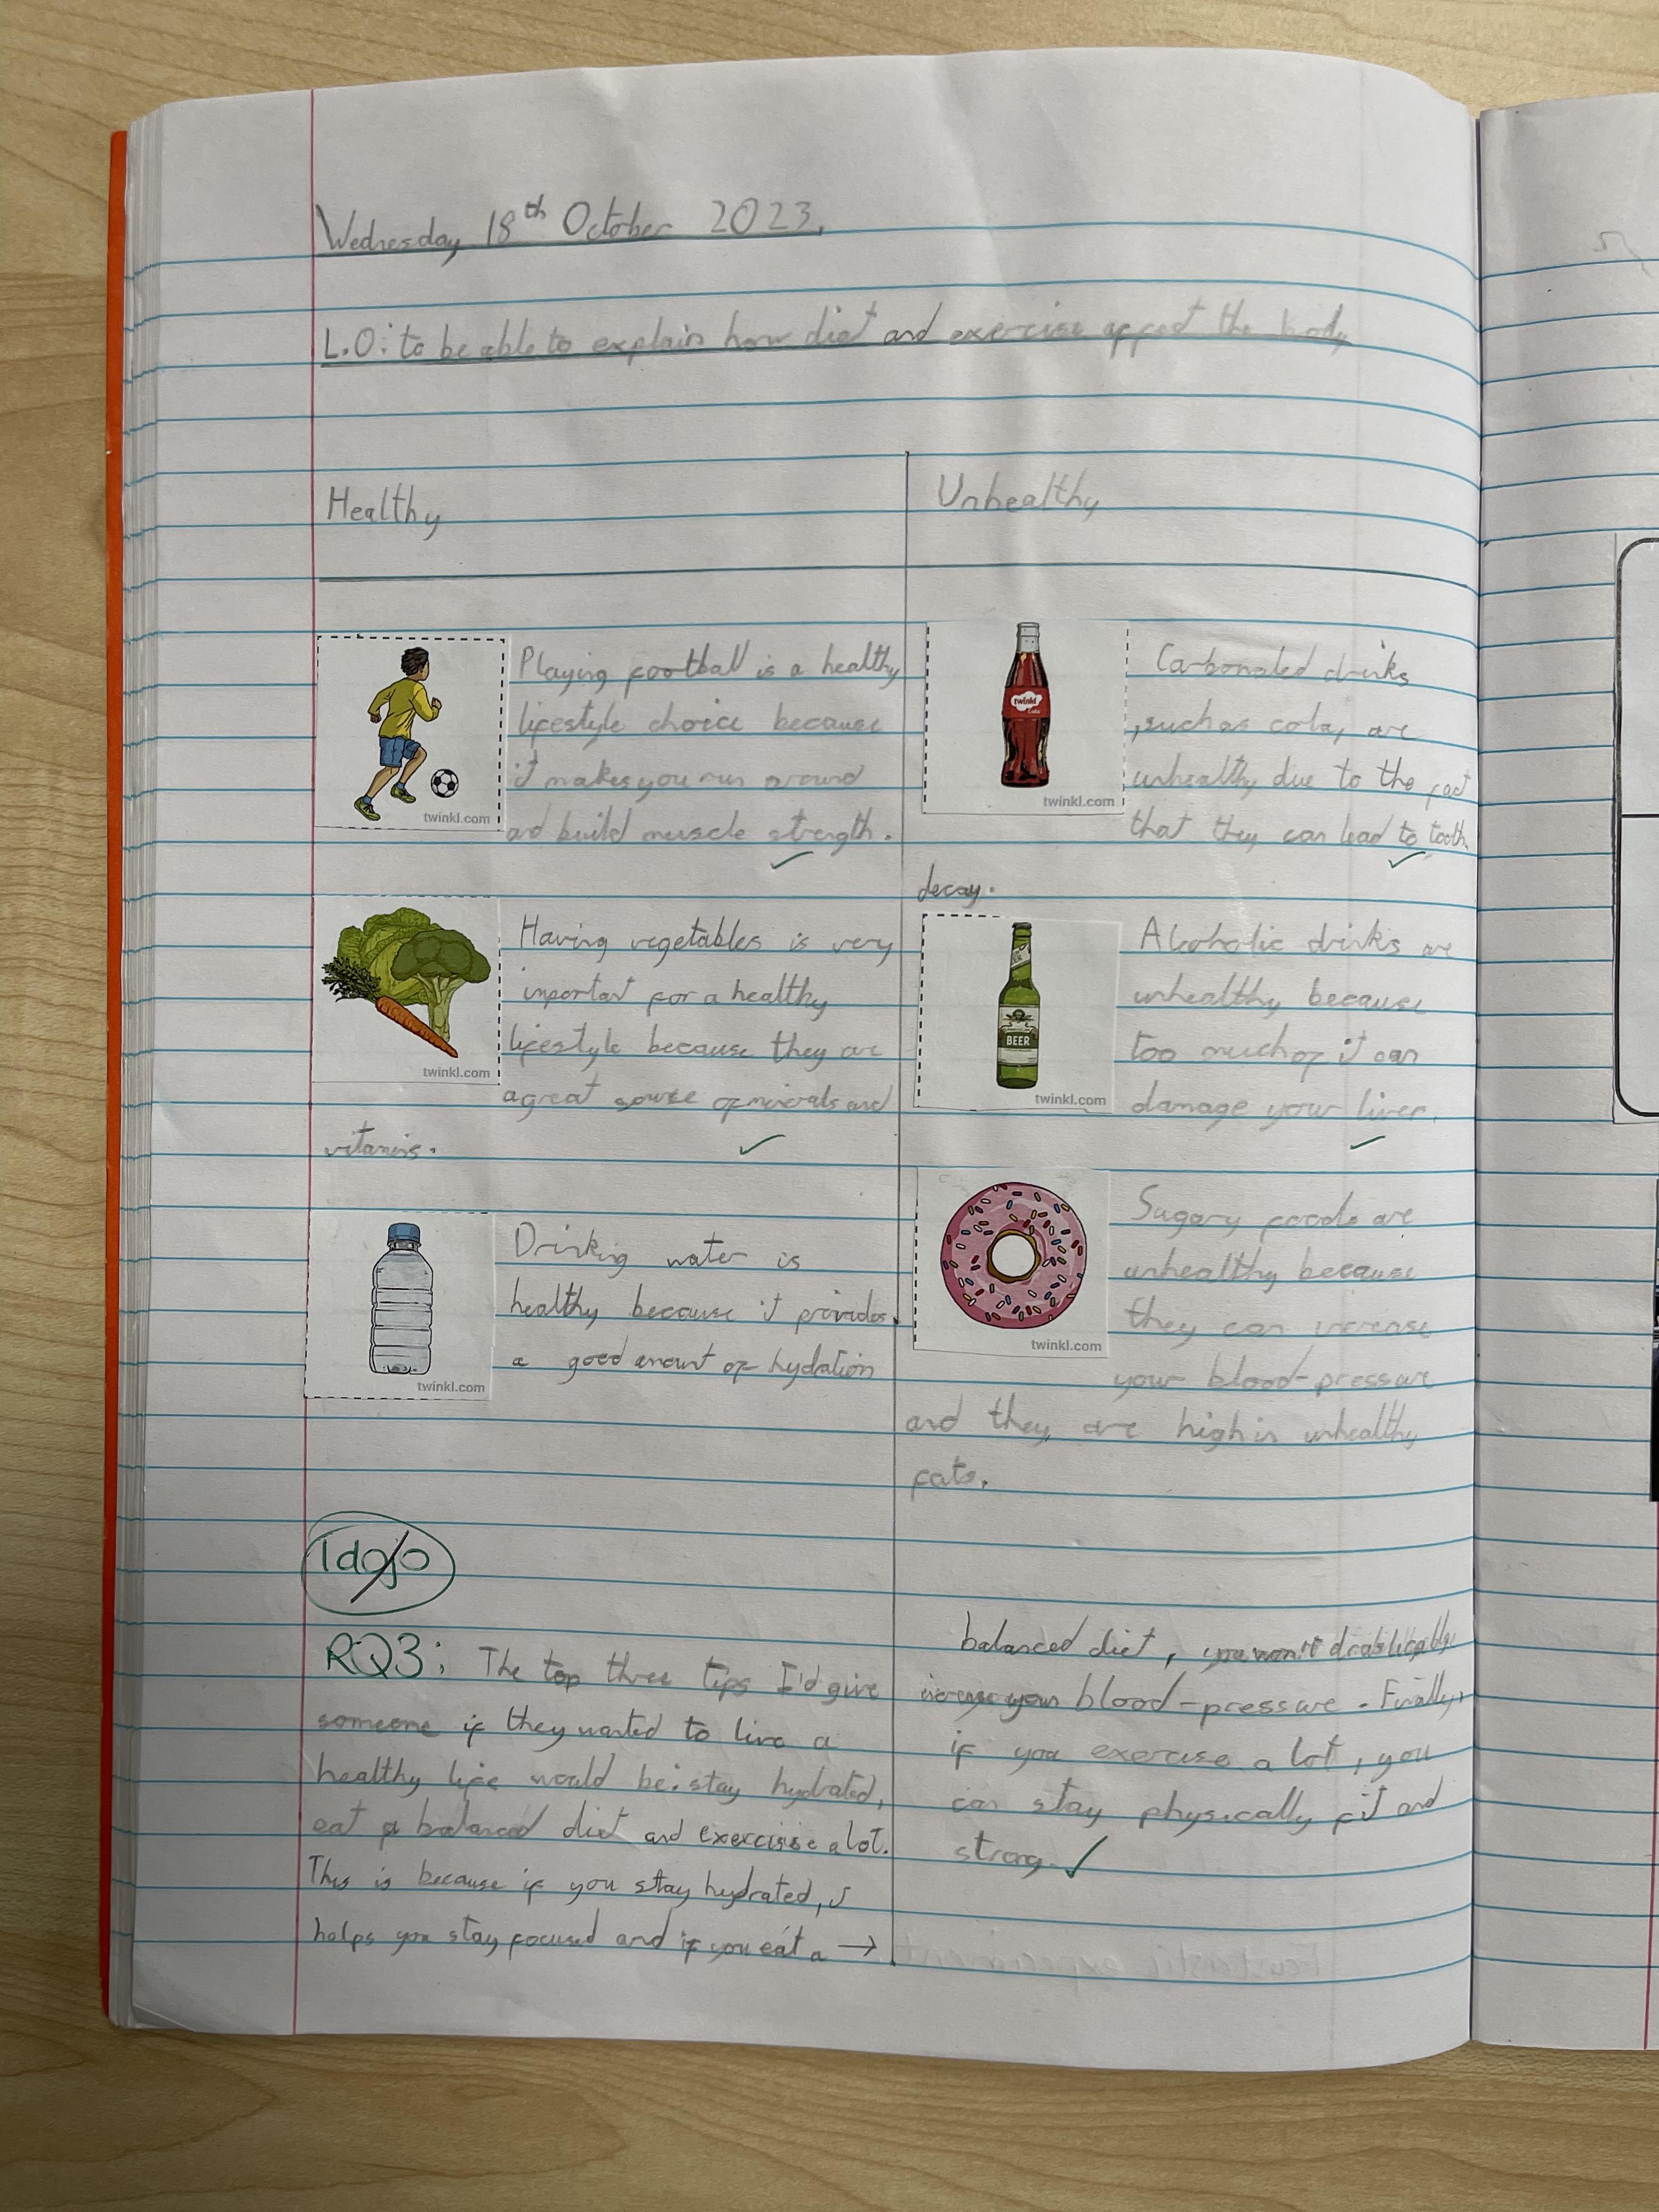 Wednesday 18th October 2023.
L.O: to be able to explain how diet and exercise affect the body
Healthy
Playing football is a healthy
lifestyle choice because
it makes you run around
and build muscle strength.
twinkl.com
Having vegetables is very
important for a healthy
lifestyle because they are
a great sourse of minerals and
vitamins.
twinkl.com
Drinking water is
healthy because it provides
a good amount of hydation
twinkl.com
Unhealthy
Carbonated drinks
, such as cola, are
unhealthy due to the fact
that they can lead to tooth
decay.
twinkl
Cola
twinkl.com
Alcoholic drinks are
unhealthy because
too much of it can
damage your liver.
BEER
twinkl.com
Sugary foods are
unhealthy because
they can increase
your blood-pressure
and they are high in unhealthy
fats.
twinkl.com
1 dojo
RQ3: The top three tips I'd give
someone if they wanted to live a
healthy life would be: stay hydrated,
eat a balanced diet and exercise a lot.
This is because if you stay hydrated, it
helps you stay focused and if you eat a →
balanced diet, you won't drastically
increase your blood-pressure. Finally,
if you exercise a lot, you
can stay physically fit and
strong.